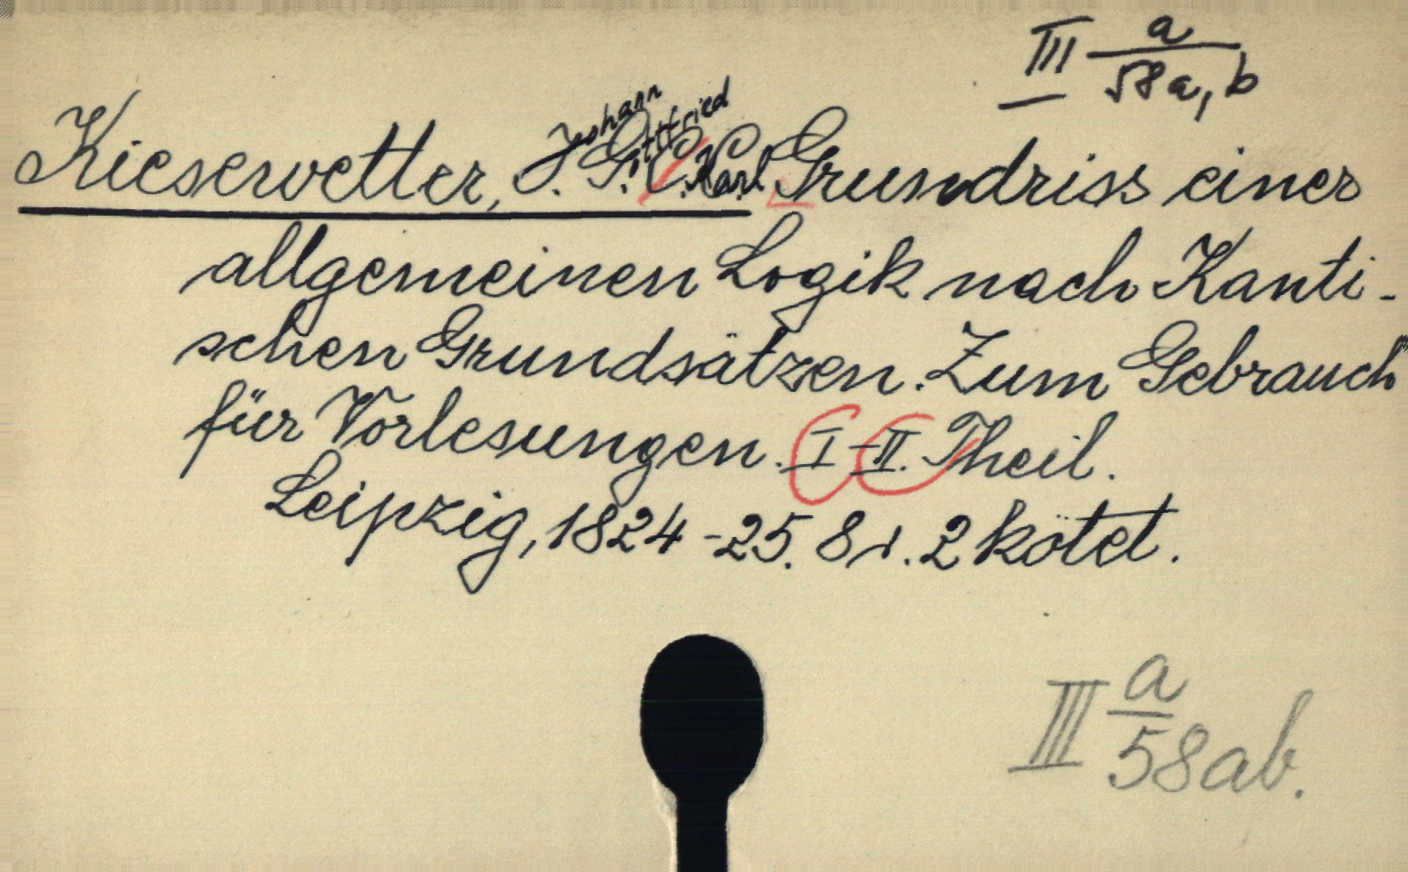 III a/58a, b
Johann Gottfried
Kiesewetter, J. G. C. Karl Grundriss einer
allgemeinen Logik nach Kanti-
schen Grundsätzen. Zum Gebrauch
für Vorlesungen. I-II. Theil.
Leipzig, 1824-25. 8r. 2 kötet.
III a/58ab.